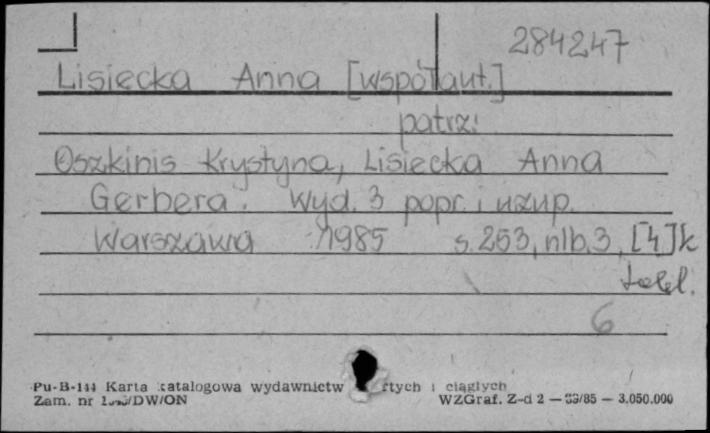 284247
Lisiecka Anna [współaut.]
patrz:
Oszkinis Krystyna, Lisiecka Anna
Gerbera. Wyd. 3 popr. i uzup.
Warszawa 1985 s. 253, nlb. 3, [4] k
tabl.
6
Pu-B-144 Karta katalogowa wydawnictw rtych i ciągłych
Zam. nr /DW/ON WZGraf. Z-d 2 — /85 — 3.050.000